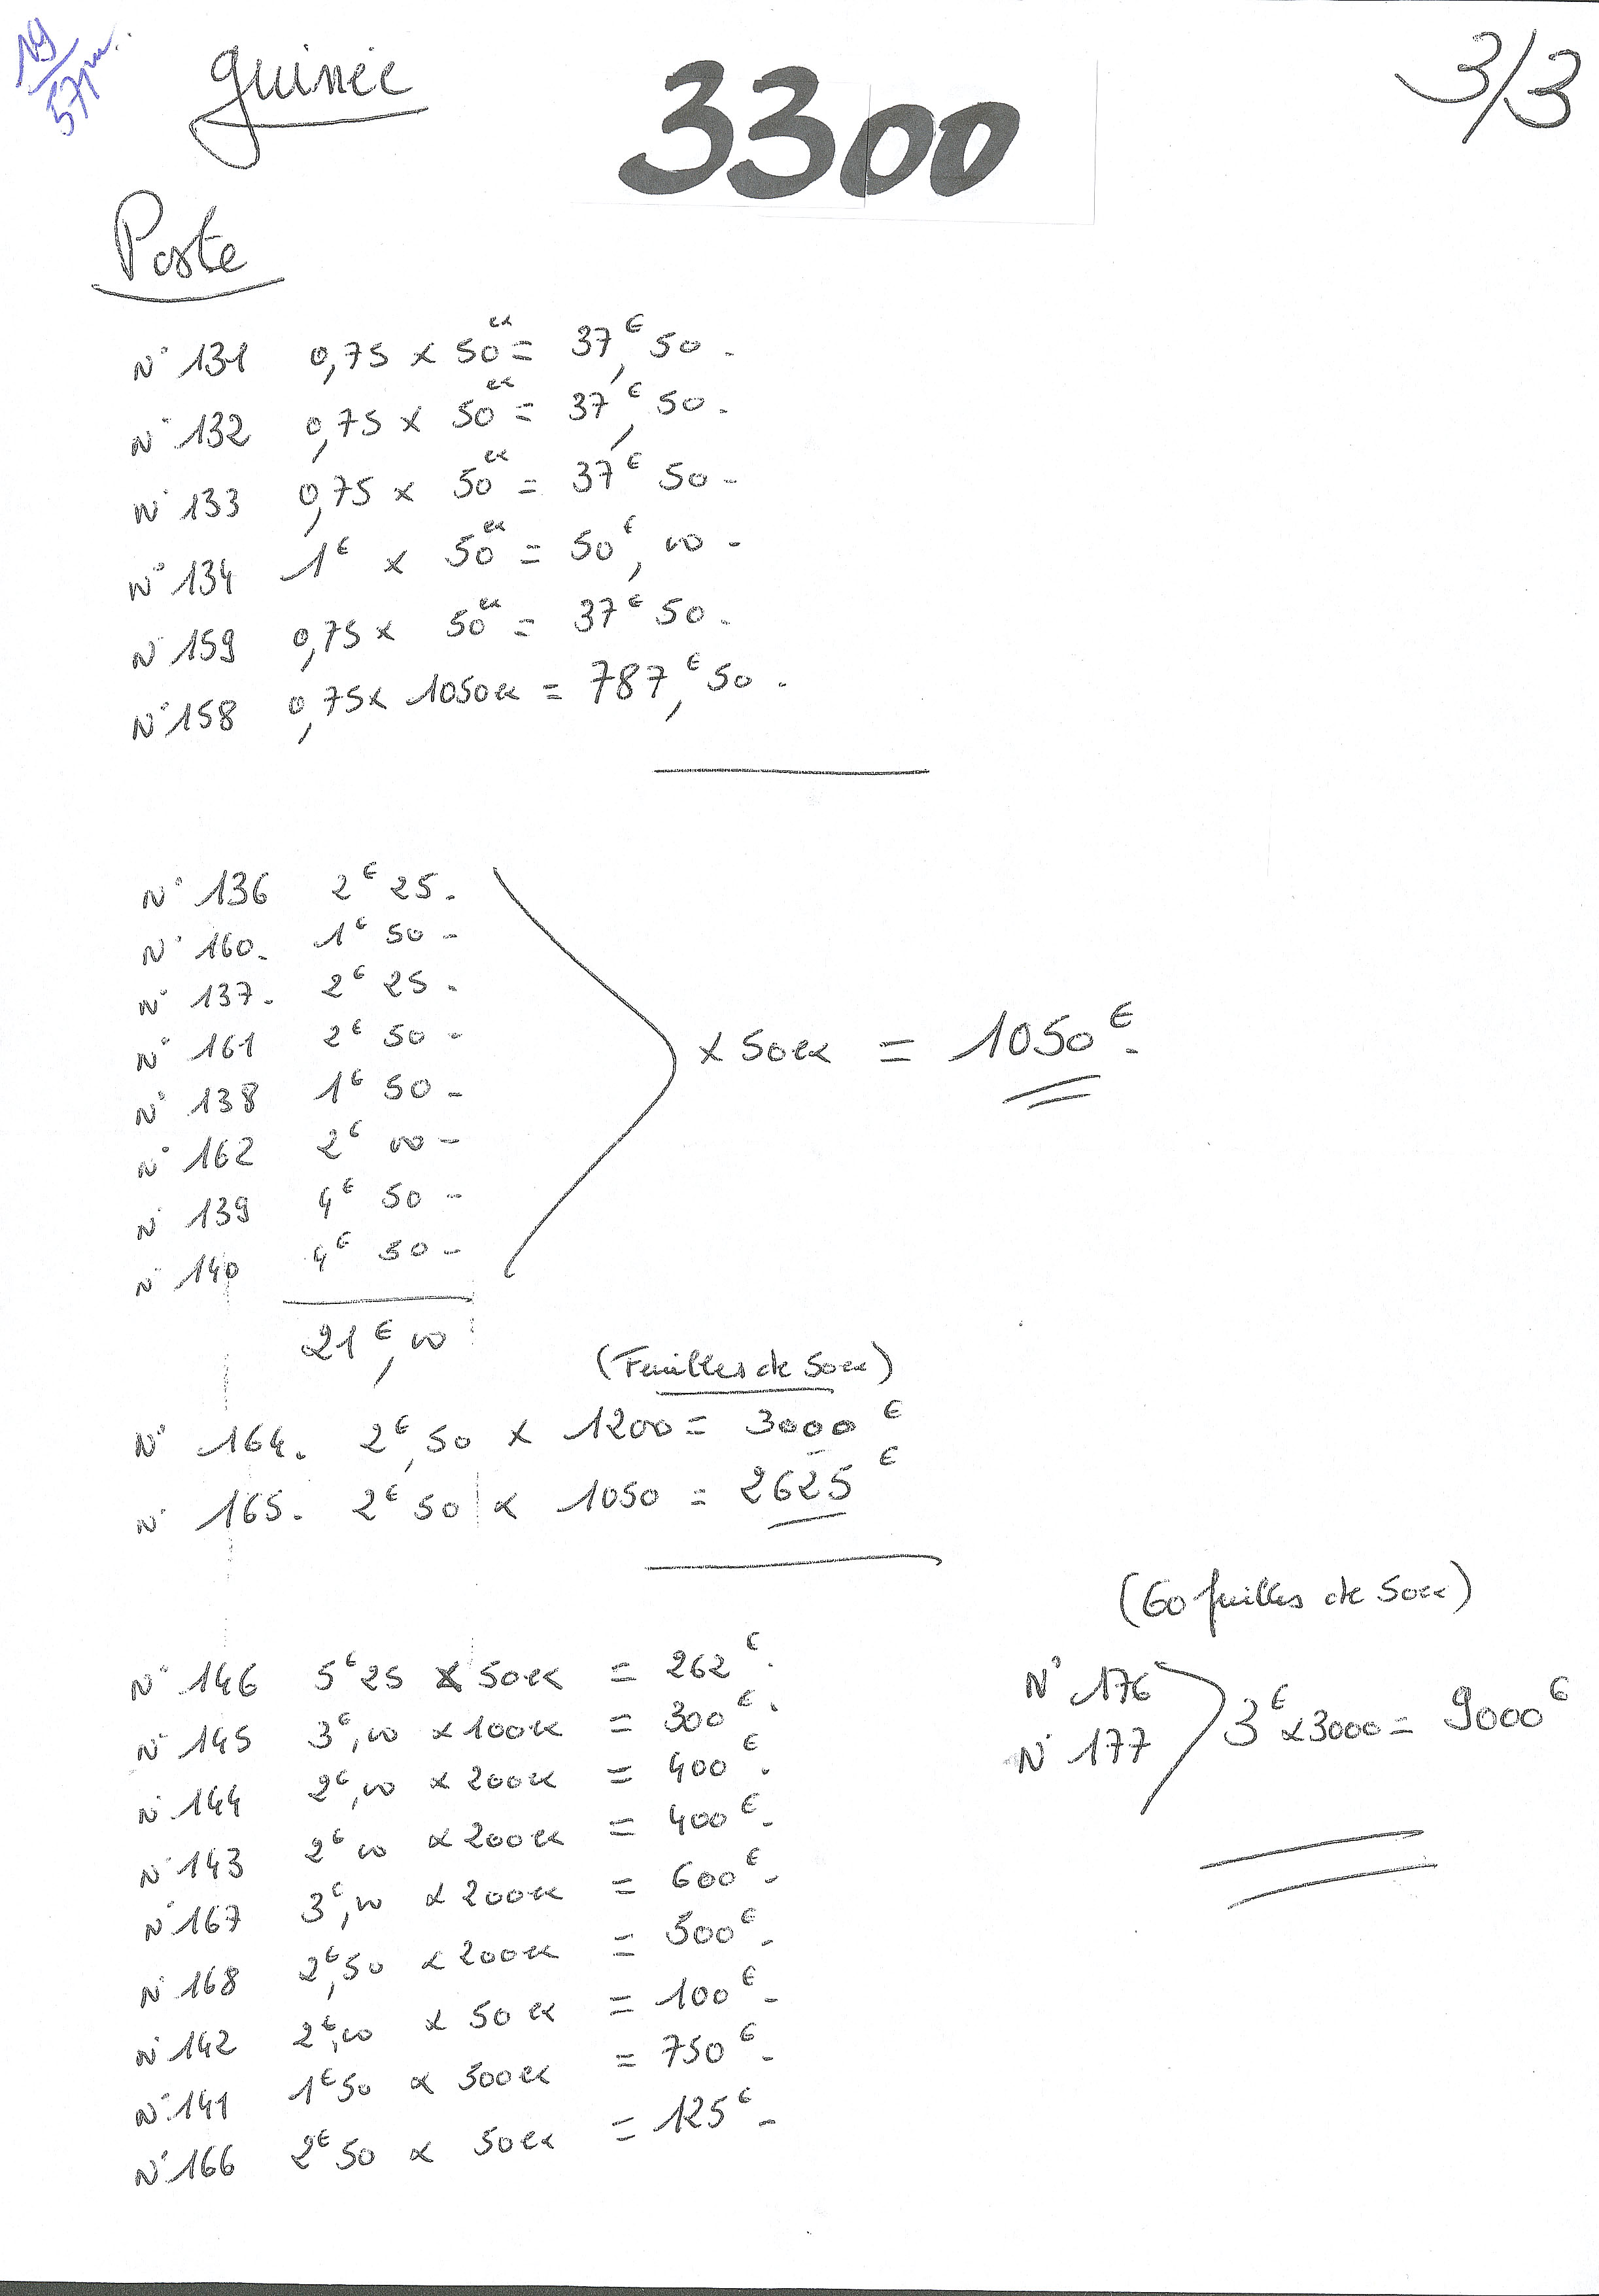 19/57
Guinée
3300
3/3
Poste
N° 131 0,75 x 50ex = 37,€50.
N° 132 0,75 x 50ex = 37,€50.
N° 133 0,75 x 50ex = 37€50-
N° 134 1€ x 50ex = 50€,00-
N° 159 0,75 x 50ex = 37€50.
N° 158 0,75 x 1050ex = 787,€50.
N° 136 2€25.
N° 160. 1€50-
N° 137. 2€25.
N° 161 2€50-
N° 138 1€50-
N° 162 2€00-
N° 139 4€50-
N° 140 4€50-
21€,00
x 50ex = 1050€.
(Feuilles de 50ex)
N° 164. 2€,50 x 1200 = 3000€
N° 165. 2€50 x 1050 = 2625€
N° 146 5€25 x 50ex = 262€.
N° 145 3€,00 x 100ex = 300€.
N° 144 2€,00 x 200ex = 400€.
N° 143 2€00 x 200ex = 400€.
N° 167 3€,00 x 200ex = 600€-
N° 168 2€,50 x 200ex = 500€.
N° 142 2€,00 x 50ex = 100€-
N° 141 1€50 x 500ex = 750€.
N° 166 2€50 x 50ex = 125€-
(60 feuilles de 50ex)
N° 176
N° 177
3€ x 3000 = 9000€